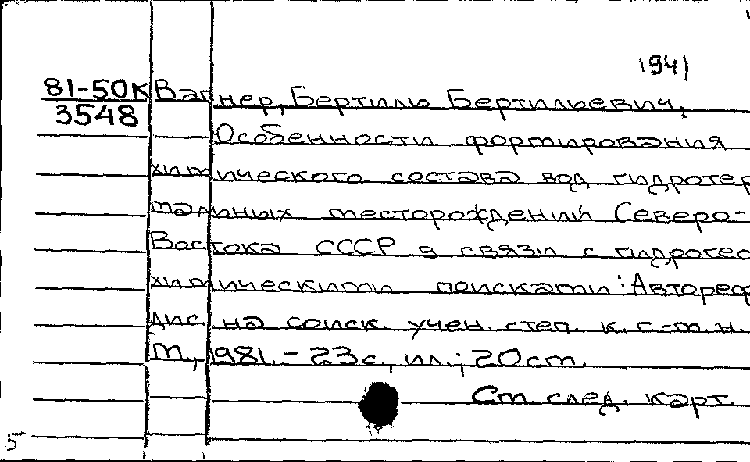 1941
81-50К Вагнер, Бертиль Бертильевич.
3548
Особенности формирования
химического состава вод гидротер
мальных месторождений Северо-
Востока СССР в связи с гидрогео
химическими поисками: Автореф
дис. на соиск. учен. степ. к. г.-м. н.
М., 1981. - 23 с., ил.; 20 см.
См след. карт.
5